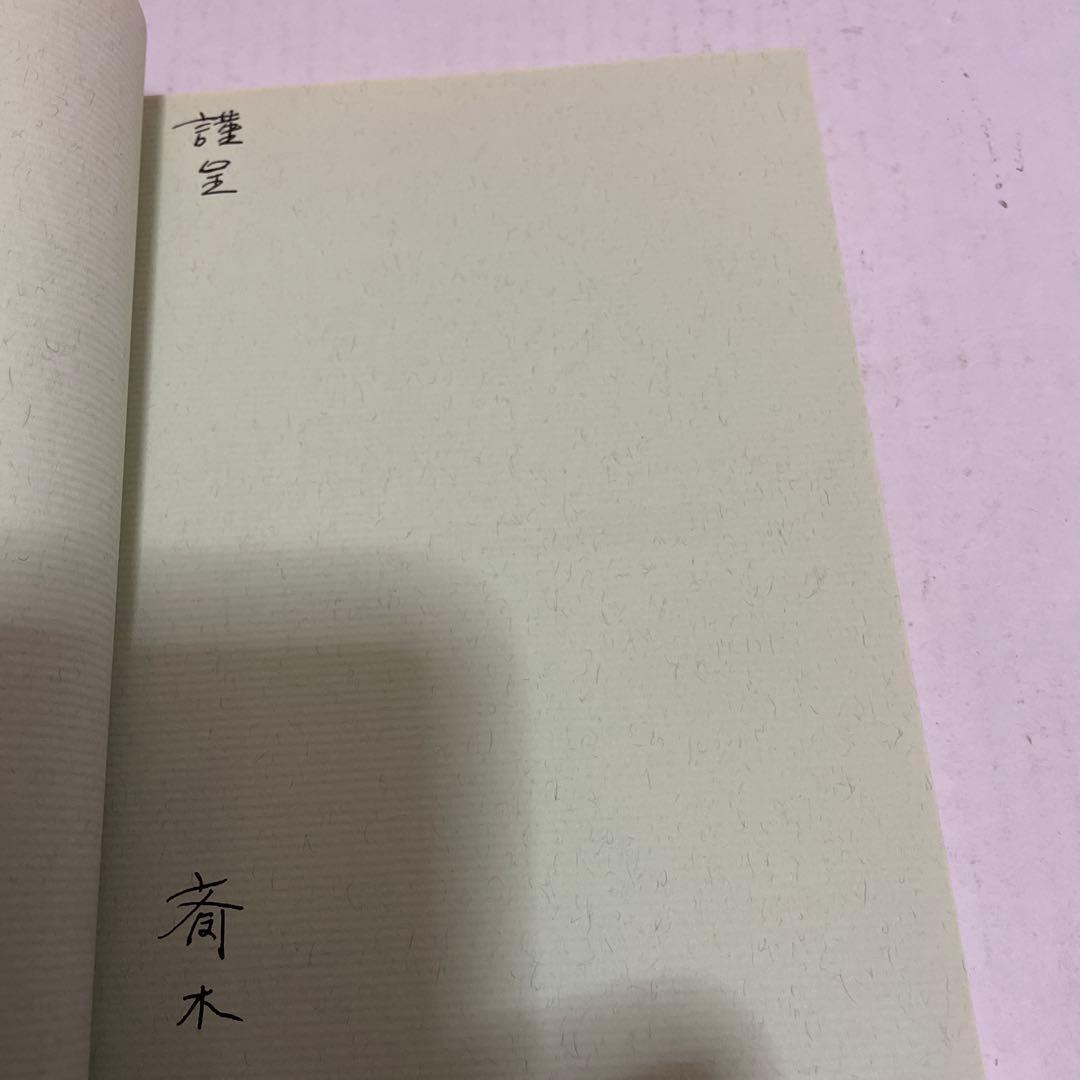 謹呈
斎木